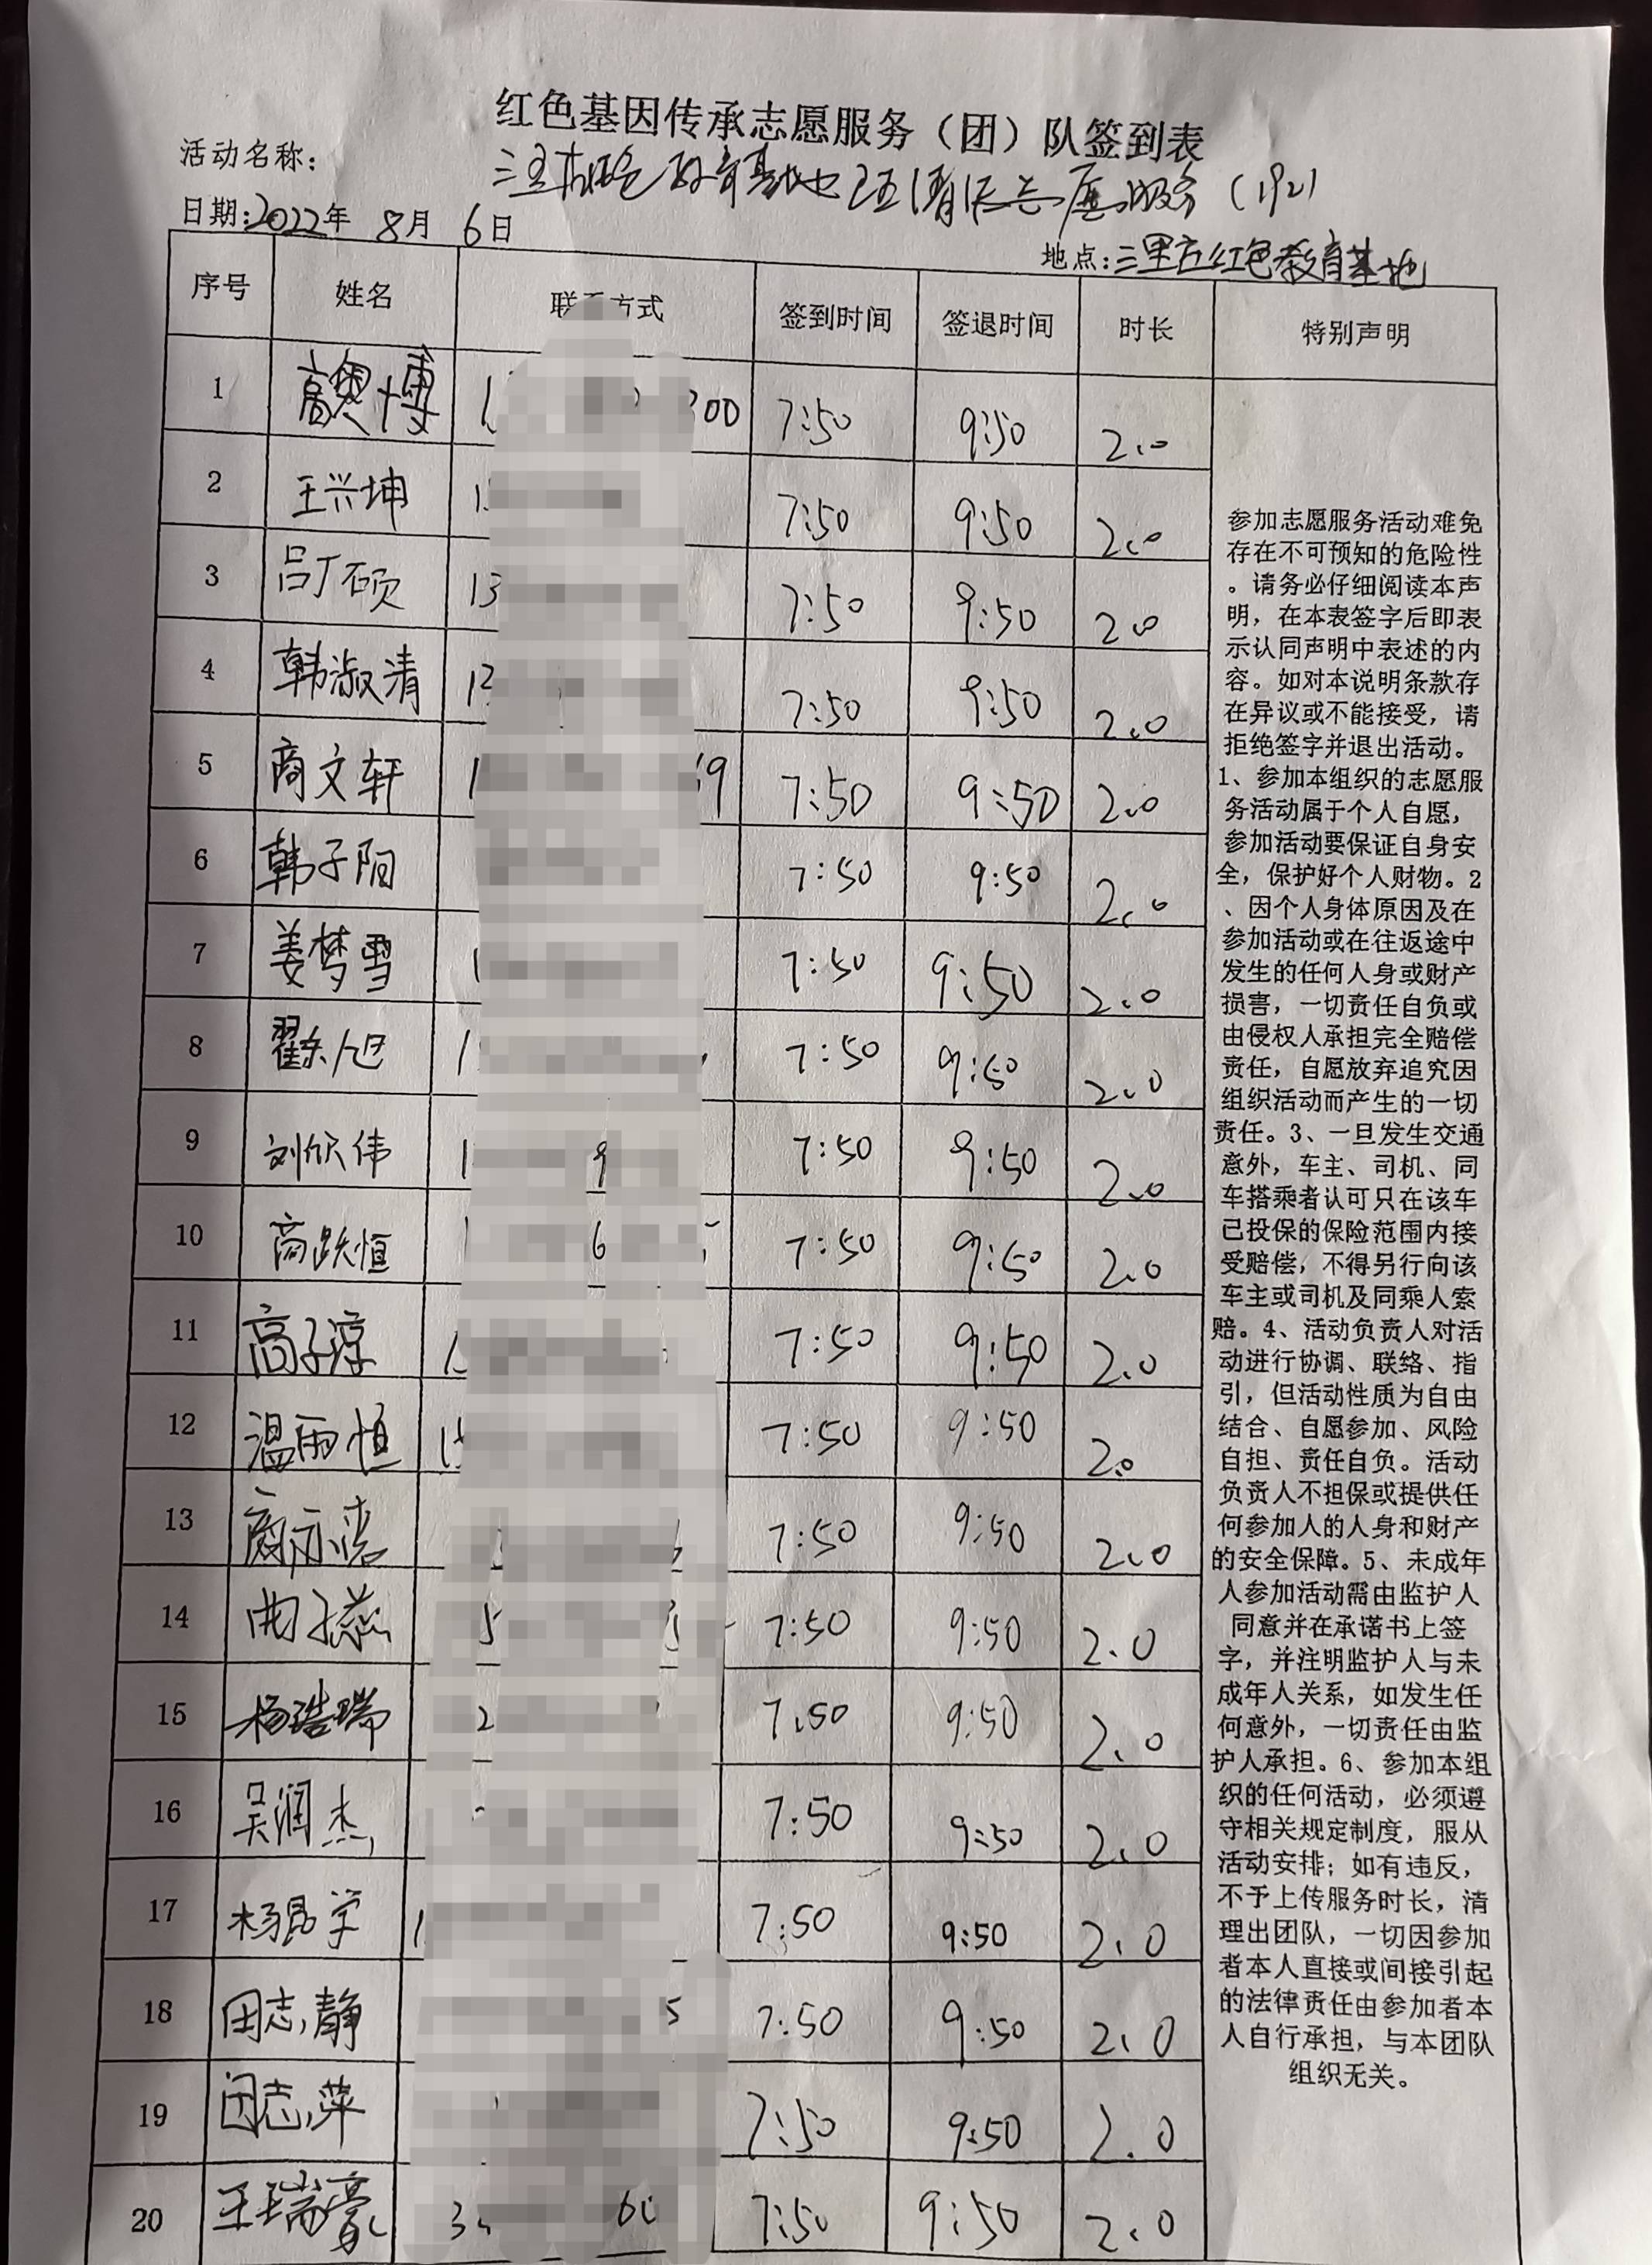 红色基因传承志愿服务（团）队签到表
活动名称: 教育基地 志愿服务 (192)
日期:2022年 8月 6日
地点:三里庄红色教育基地
序号 姓名 联系方式 签到时间 签退时间 时长 特别声明
1 高奥博 1 300 7:50 9:50 2.0
2 王兴坤 1 7:50 9:50 2.0
3 吕硕 13 7:50 9:50 2.0
4 韩淑清 7:50 9:50 2.0
5 商文轩 1 9 7:50 9:50 2.0
6 韩子阳 7:50 9:50 2.0
7 姜梦雪 1 7:50 9:50 2.0
8 翟东旭 1 7:50 9:50 2.0
9 刘欣伟 1 9 7:50 9:50 2.0
10 商跃恒 6 7:50 9:50 2.0
11 高子淳 1 7:50 9:50 2.0
12 温雨恒 15 7:50 9:50 2.0
13 7:50 9:50 2.0
14 曲子蕊 5 7:50 9:50 2.0
15 杨浩瑞 2 7:50 9:50 2.0
16 吴润杰 7:50 9:50 2.0
17 杨昆学 1 7:50 9:50 2.0
18 田志静 5 7:50 9:50 2.0
19 田志萍 7:50 9:50 2.0
20 王瑞豪 3 6 7:50 9:50 2.0
参加志愿服务活动难免
存在不可预知的危险性
。请务必仔细阅读本声
明，在本表签字后即表
示认同声明中表述的内
容。如对本说明条款存
在异议或不能接受，请
拒绝签字并退出活动。
1、参加本组织的志愿服
务活动属于个人自愿，
参加活动要保证自身安
全，保护好个人财物。2
、因个人身体原因及在
参加活动或在往返途中
发生的任何人身或财产
损害，一切责任自负或
由侵权人承担完全赔偿
责任，自愿放弃追究因
组织活动而产生的一切
责任。3、一旦发生交通
意外，车主、司机、同
车搭乘者认可只在该车
已投保的保险范围内接
受赔偿，不得另行向该
车主或司机及同乘人索
赔。4、活动负责人对活
动进行协调、联络、指
引，但活动性质为自由
结合、自愿参加、风险
自担、责任自负。活动
负责人不担保或提供任
何参加人的人身和财产
的安全保障。5、未成年
人参加活动需由监护人
同意并在承诺书上签
字，并注明监护人与未
成年人关系，如发生任
何意外，一切责任由监
护人承担。6、参加本组
织的任何活动，必须遵
守相关规定制度，服从
活动安排；如有违反，
不予上传服务时长，清
理出团队，一切因参加
者本人直接或间接引起
的法律责任由参加者本
人自行承担，与本团队
组织无关。